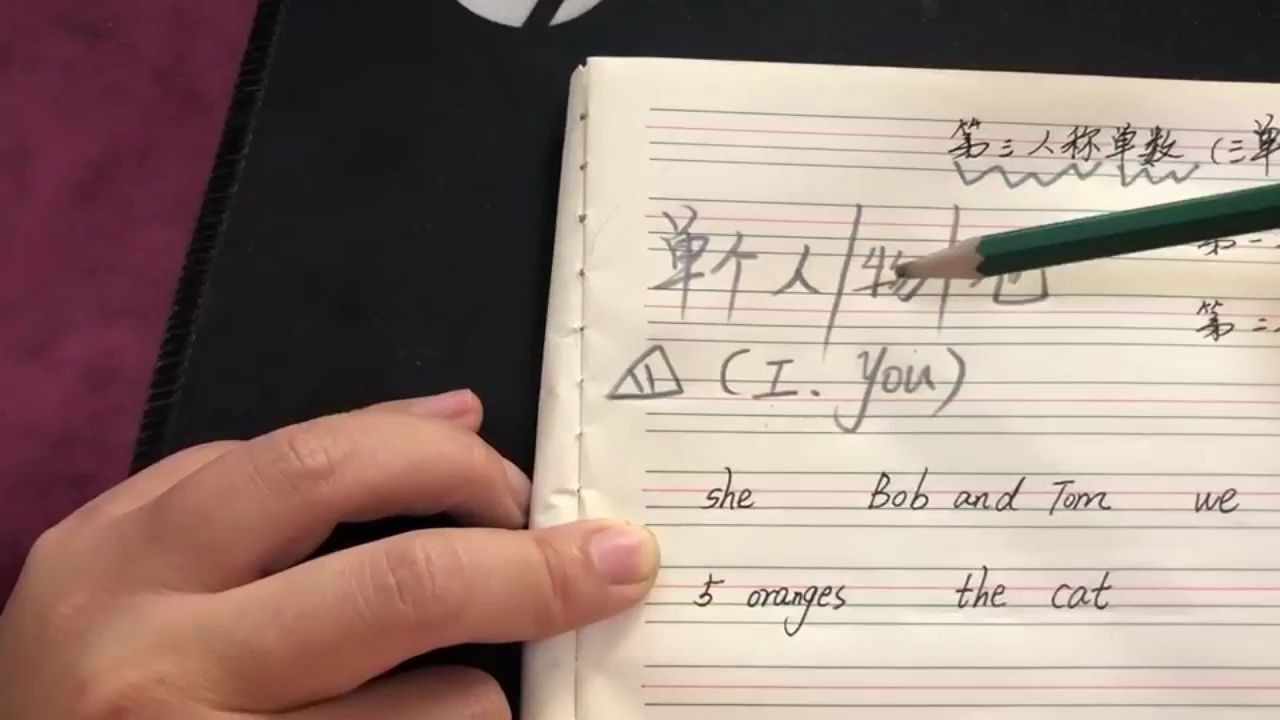 第三人称单数（三单
单个人/物
第一
第二
(I. you)
she Bob and Tom we
5 oranges the cat